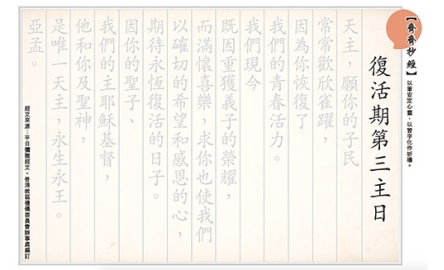 【齊齊抄經】以筆安定心靈，以習字化作祈禱。
復活期第三主日
天主，願你的子民
常常歡欣雀躍，
因為你恢復了
我們的青春活力。
我們現今
既因重獲義子的榮耀，
而滿懷喜樂，求你也使我們
以確切的希望和感恩的心，
期待永恆復活的日子。
因你的聖子、
我們的主耶穌基督，
他和你及聖神，
是唯一天主，永生永王。
亞孟。
經文來源：平日彌撒經文，香港教區禮儀委員會辦事處編訂